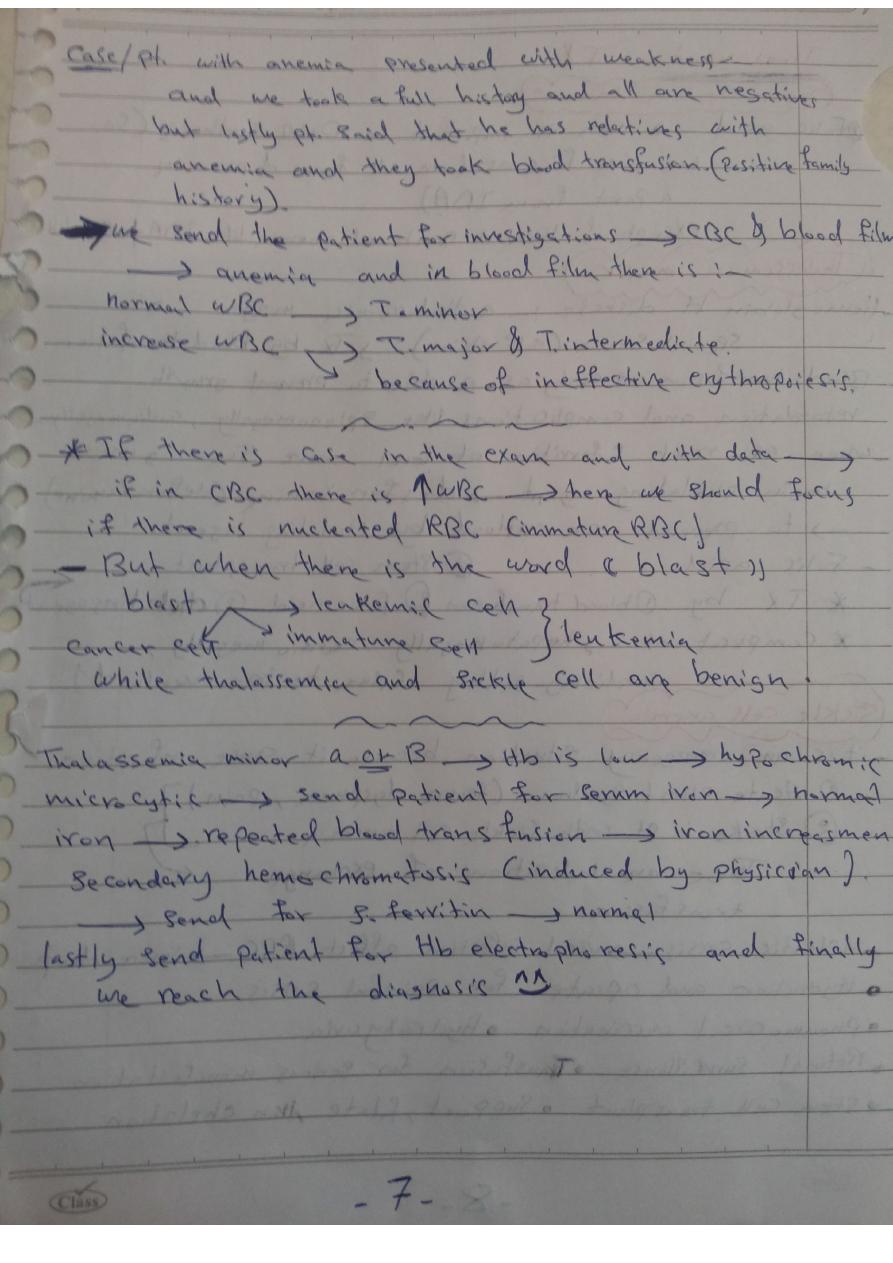 Case/ pt. with anemia presented with weakness
and we took a full history and all are negatives
but lastly pt. said that he has relatives with
anemia and they took blood transfusion. (Positive family
history).
→ we send the patient for investigations → CBC & blood film
→ anemia and in blood film there is :-
normal WBC → T. minor
increase WBC → T. major & T. intermediate.
↘ because of ineffective erythropoiesis.
* If there is case in the exam and with data →
if in CBC there is ↑WBC → here we should focus
if there is nucleated RBC (immature RBC)
- But when there is the word (( blast ))
blast → leukemic cell
cancer cell immature cell } leukemia
while thalassemia and sickle cell are benign.
Thalassemia minor a or B → Hb is low → hypochromic
microcytic → send patient for serum iron → normal
iron → repeated blood transfusion → iron increasmen
Secondary hemochromatosis (induced by physician).
→ send for s. ferritin → normal
lastly send patient for Hb electrophoresis and finally
we reach the diagnosis ^^
T
Class
- 7 -